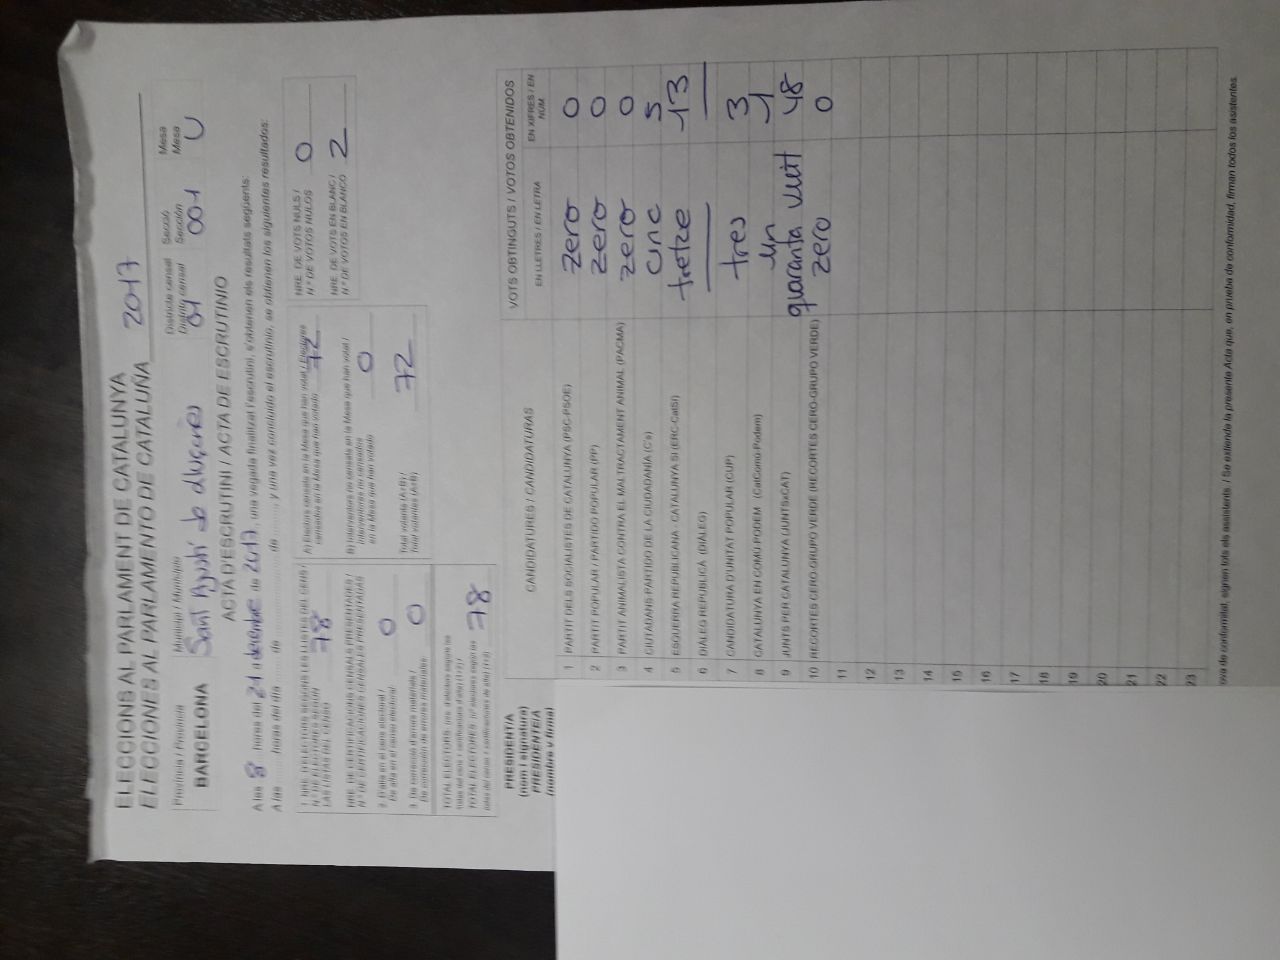 ELECCIONS AL PARLAMENT DE CATALUNYA
ELECCIONES AL PARLAMENTO DE CATALUÑA 2017
Província / Provincia
BARCELONA
Municipi / Municipio
Sant Agustí de Lluçanès
Districte censal
Distrito censal
01
Secció
Sección
001
Mesa
Mesa
U
ACTA D'ESCRUTINI / ACTA DE ESCRUTINIO
A les 8 hores del 21 de desembre de 2017, una vegada finalitzat l'escrutini, s'obtenen els resultats següents:
A las horas del día de de y una vez concluido el escrutinio, se obtienen los siguientes resultados:
1. NRE. D'ELECTORS SEGONS LES LLISTES DEL CENS /
N.º DE ELECTORES SEGÚN
LAS LISTAS DEL CENSO 78
NRE. DE CERTIFICACIONS CENSALS PRESENTADES /
N.º DE CERTIFICACIONES CENSALES PRESENTADAS
0
0
TOTAL ELECTORS
TOTAL ELECTORES 78
A) Electors censats en la Mesa que han votat / Electores
censados en la Mesa que han votado 72
en la Mesa que han votado 0
Total votants (A+B) /
Total votantes (A+B) 72
NRE. DE VOTS NULS /
N.º DE VOTOS NULOS 0
NRE. DE VOTS EN BLANC /
N.º DE VOTOS EN BLANCO 2
CANDIDATURES / CANDIDATURAS
VOTS OBTINGUTS / VOTOS OBTENIDOS
EN LLETRES / EN LETRA
EN XIFRES / EN NÚM.
1 PARTIT DELS SOCIALISTES DE CATALUNYA (PSC-PSOE) zero 0
2 PARTIT POPULAR / PARTIDO POPULAR (PP) zero 0
3 PARTIT ANIMALISTA CONTRA EL MALTRACTAMENT ANIMAL (PACMA) zero 0
4 CIUTADANS-PARTIDO DE LA CIUDADANÍA (C's) cinc 5
5 ESQUERRA REPUBLICANA - CATALUNYA SÍ (ERC-CatSí) tretze 13
6 DIÀLEG REPUBLICÀ (DIÀLEG)
7 CANDIDATURA D'UNITAT POPULAR (CUP) tres 3
8 CATALUNYA EN COMÚ-PODEM (CatComú-Podem) un 1
9 JUNTS PER CATALUNYA (JUNTSxCAT) quaranta vuit 48
10 RECORTES CERO-GRUPO VERDE (RECORTES CERO-GRUPO VERDE) zero 0
11
12
13
14
15
16
17
18
19
20
21
22
23
PRESIDENT/A
(nom i signatura)
PRESIDENTE/A
(nombre y firma)
ova de conformitat, signen tots els assistents. / Se extiende la presente Acta que, en prueba de conformidad, firman todos los asistentes.